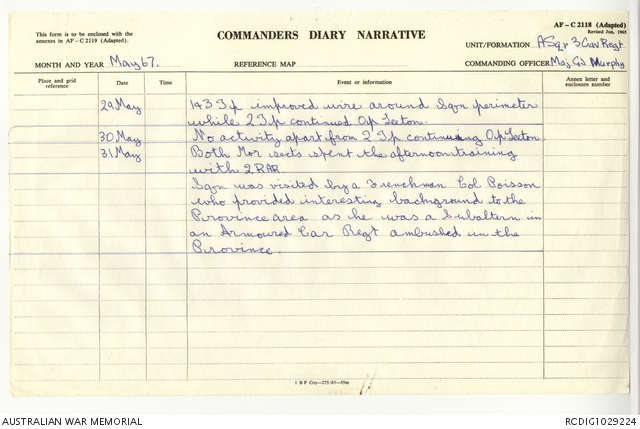 This form is to be enclosed with the
annexes in AF – C 2119 (Adapted).
COMMANDERS DIARY NARRATIVE
AF – C 2118 (Adapted)
Revised Jun, 1965
UNIT/FORMATION A Sqn 3 Cav Regt
MONTH AND YEAR May 67.
REFERENCE MAP
COMMANDING OFFICER Maj GJ Murphy
Place and grid reference
Date
Time
Event or information
Annex letter and enclosure number
29 May 1 & 3 Tp improved wire around Sqn perimeter
while 2 Tp continued Op Leeton.
30 May No activity apart from 2 Tp continuing Op Leeton
31 May Both Mor sects spent the afternoon training
with 2 RAR.
Sqn was visited by a Frenchman Col Poisson
who provided interesting background to the
Province area as he was a Subaltern in
an Armoured Car Regt ambushed in the
Province.
AUSTRALIAN WAR MEMORIAL
RCDIG1029224